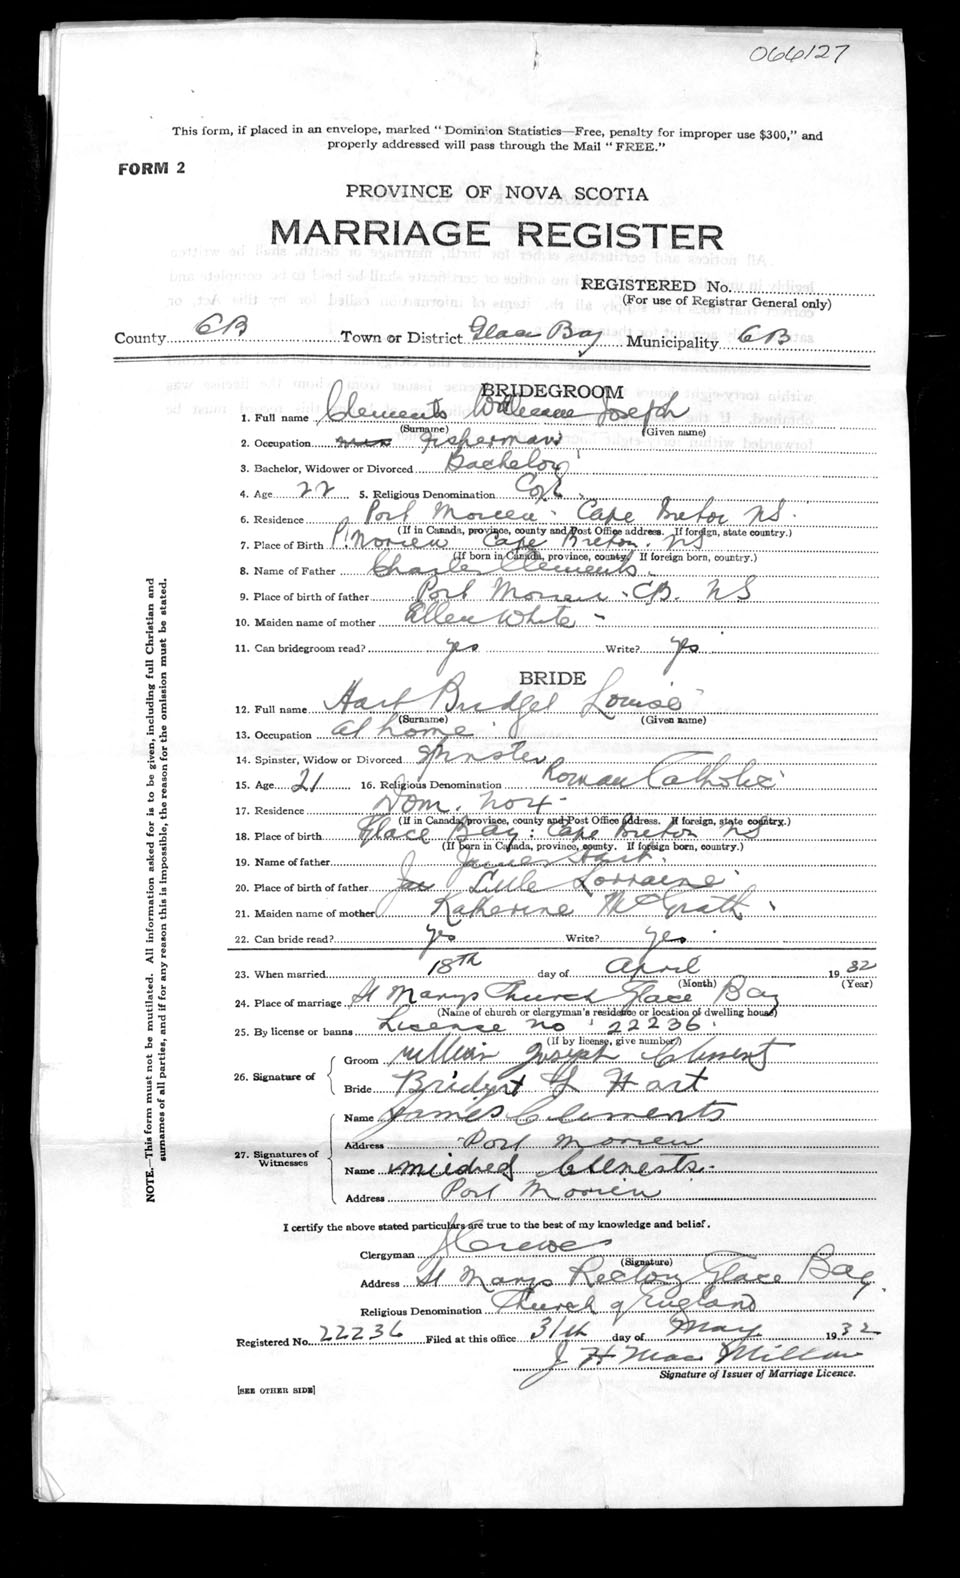 066127
This form, if placed in an envelope, marked "Dominion Statistics—Free, penalty for improper use $300," and
properly addressed will pass through the Mail "FREE."
FORM 2
PROVINCE OF NOVA SCOTIA
MARRIAGE REGISTER
REGISTERED No.
(For use of Registrar General only)
County CB Town or District Glace Bay Municipality CB
BRIDEGROOM
1. Full name Clements William Joseph
(Surname) (Given name)
2. Occupation Fisherman
3. Bachelor, Widower or Divorced Bachelor
4. Age 22 5. Religious Denomination C of E.
6. Residence Port Morien - Cape Breton NS.
(If in Canada, province, county and Post Office address. If foreign, state country.)
7. Place of Birth P. Morien Cape Breton. NS
(If born in Canada, province, county. If foreign born, country.)
8. Name of Father Charles Clements.
9. Place of birth of father Port Morien - CB. NS
10. Maiden name of mother Ellen White -
11. Can bridegroom read? yes Write? yes
BRIDE
12. Full name Hart Bridget Louise
(Surname) (Given name)
13. Occupation at home
14. Spinster, Widow or Divorced Spinster
15. Age 21 16. Religious Denomination Roman Catholic
17. Residence Dom. No 4 -
(If in Canada, province, county and Post Office address. If foreign, state country.)
18. Place of birth Glace Bay: Cape Breton NS
(If born in Canada, province, county. If foreign born, country.)
19. Name of father James Hart.
20. Place of birth of father Little Lorraine
21. Maiden name of mother Katherine McGrath
22. Can bride read? yes Write? yes
23. When married 18th day of April 1932
(Month) (Year)
24. Place of marriage St Marys Church Glace Bay
(Name of church or clergyman's residence or location of dwelling house)
25. By license or banns License no 22236
(If by license, give number)
26. Signature of Groom William Joseph Clement
Bride Bridget L Hart
27. Signatures of Witnesses Name James Clements
Address Port Morien
Name Mildred Clements.
Address Port Morien
I certify the above stated particulars are true to the best of my knowledge and belief.
Clergyman J Crewe
(Signature)
Address St Marys Rectory Glace Bay.
Religious Denomination Church of England
Registered No. 22236 Filed at this office 31th day of May 1932
J H MacMillan
Signature of Issuer of Marriage Licence.
[SEE OTHER SIDE]
NOTE.—This form must not be mutilated. All information asked for is to be given, including full Christian and
surnames of all parties, and if for any reason this is impossible, the reason for the omission must be stated.